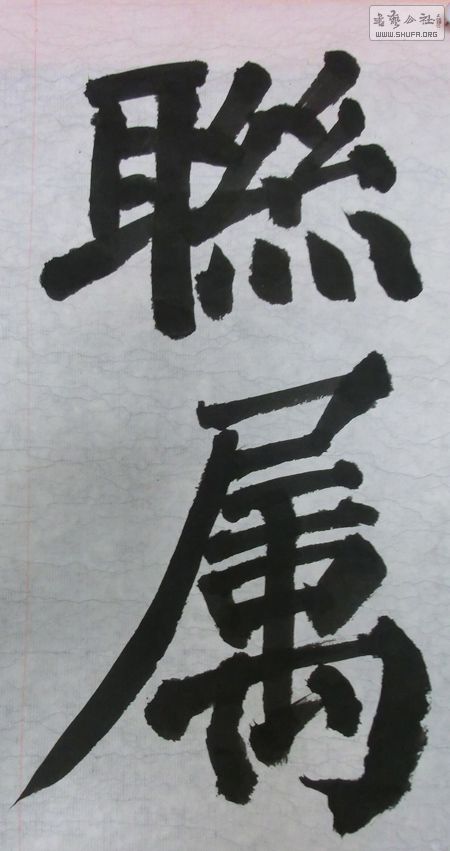 書藝公社
WWW.SHUFA.ORG
聯属